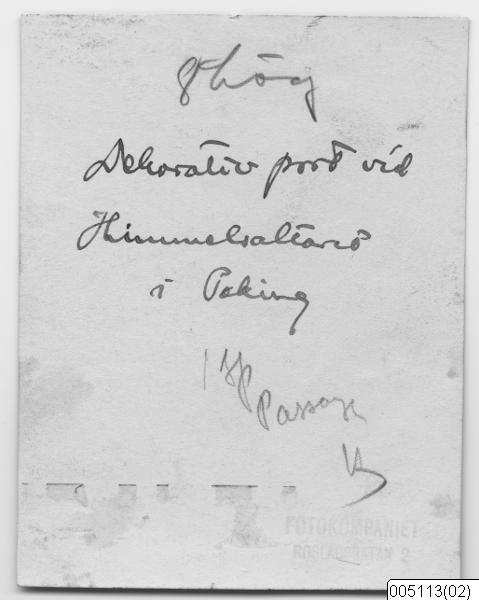 hög
Dekorativ port vid
Himmelsaltaret
i Peking
Passage
FOTOKOMPANIET
ROSLAGSGATAN 2
005113(02)